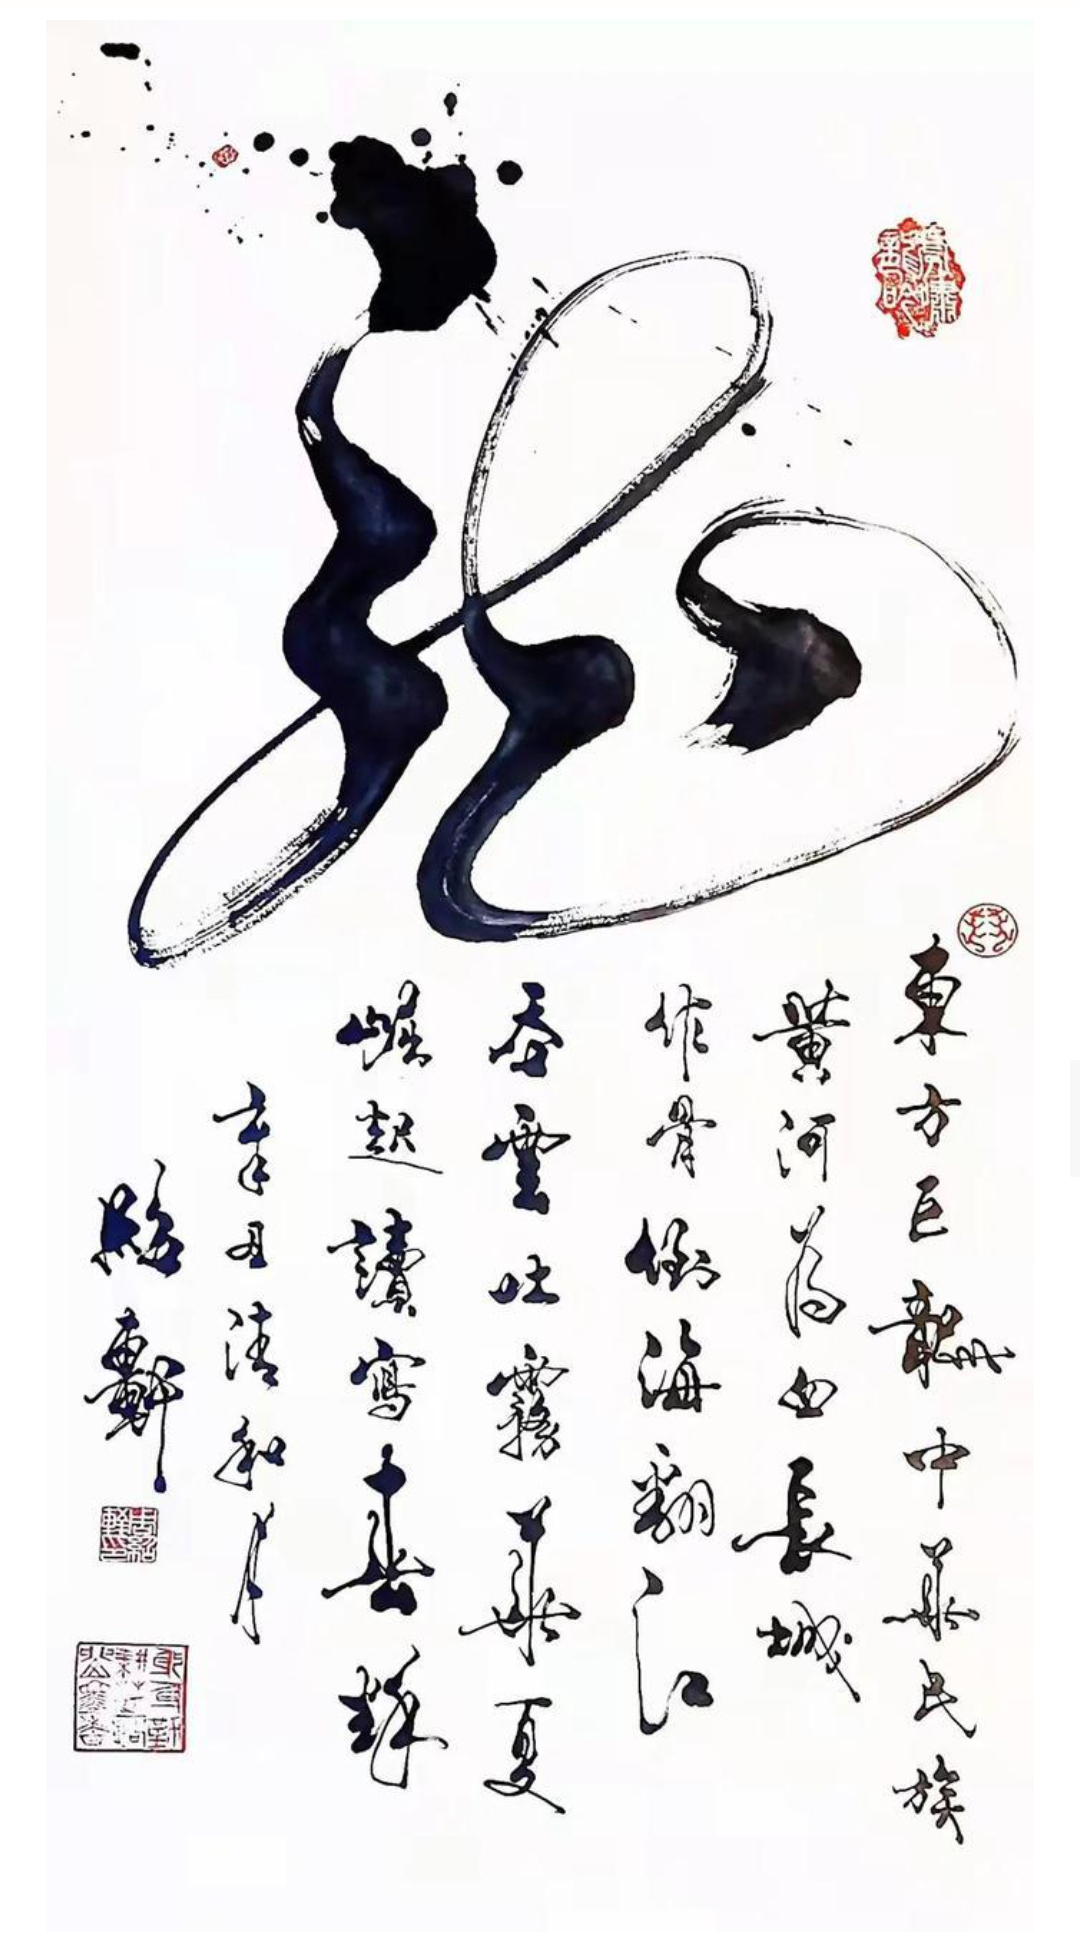 龍
東方巨龍中華民族
黃河為血長城
作骨倒海翻江
吞雲吐霧華夏
崛起讀寫春秋
辛丑清和月
紹軒